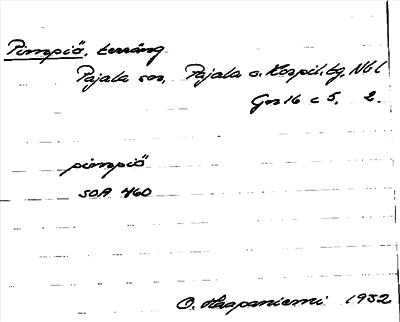 Pimpiö, terräng
Pajala sn, Pajala o. Korpil. tg, Nbl
Gvs 16 c 5, 2.
pimpiö
SOA 460
O. Haapaniemi 1932